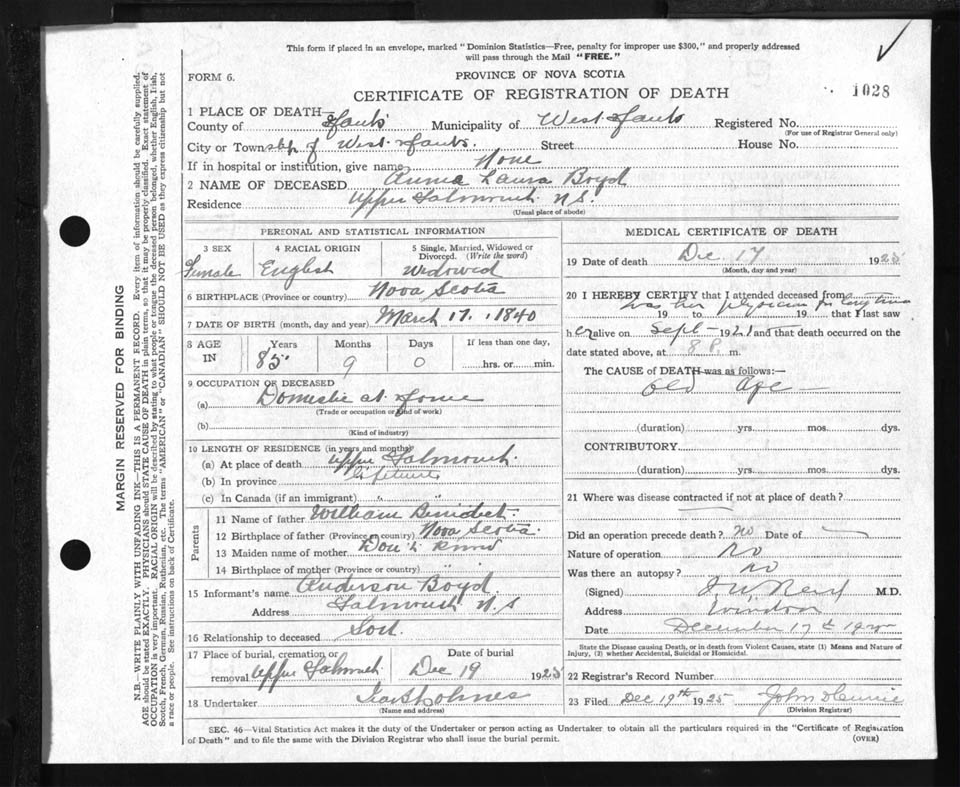 This form if placed in an envelope, marked "Dominion Statistics—Free, penalty for improper use $300," and properly addressed
will pass through the Mail "FREE."
FORM 6.
PROVINCE OF NOVA SCOTIA
CERTIFICATE OF REGISTRATION OF DEATH
1028
1 PLACE OF DEATH—
County of Hants Municipality of West Hants Registered No.
(For use of Registrar General only)
City or Township of West Hants. Street House No.
If in hospital or institution, give name None
2 NAME OF DECEASED Annie Laura Boyd
Residence Upper Falmouth N.S.
(Usual place of abode)
PERSONAL AND STATISTICAL INFORMATION
3 SEX 4 RACIAL ORIGIN 5 Single, Married, Widowed or
Divorced. (Write the word)
Female English Widowed
6 BIRTHPLACE (Province or country) Nova Scotia
7 DATE OF BIRTH (month, day and year) March 17, 1840
8 AGE IN Years Months Days If less than one day,
85 9 0 hrs. or min.
9 OCCUPATION OF DECEASED
(a) Domestic at Home
(Trade or occupation or kind of work)
(b)
(Kind of industry)
10 LENGTH OF RESIDENCE (in years and months)
(a) At place of death Upper Falmouth
(b) In province Lifetime
(c) In Canada (if an immigrant) " "
Parents
11 Name of father William Benedict
12 Birthplace of father (Province or country) Nova Scotia
13 Maiden name of mother Don't Know
14 Birthplace of mother (Province or country)
15 Informant's name Anderson Boyd
Address Falmouth N.S
16 Relationship to deceased Son.
17 Place of burial, cremation or Date of burial
removal Upper Falmouth Dec 19 1925
18 Undertaker
(Name and address)
MEDICAL CERTIFICATE OF DEATH
19 Date of death Dec 17 1925
(Month, day and year)
20 I HEREBY CERTIFY that I attended deceased from
was her physician for long time
19 to 19 that I last saw
her alive on Sept— 1921 and that death occurred on
date stated above, at 8 P. m.
The CAUSE of DEATH was as follows:—
Old Age—
(duration) yrs. mos. dys.
CONTRIBUTORY
(duration) yrs. mos. dys.
21 Where was disease contracted if not at place of death?
Did an operation precede death? no Date of
Nature of operation No
Was there an autopsy? no
(Signed) J.W. Reid M.D.
Address Windsor
Date December 17th 1925
State the Disease causing Death, or in death from Violent Causes, state (1) Means and Nature of
Injury, (2) whether Accidental, Suicidal or Homicidal.
22 Registrar's Record Number
23 Filed Dec 19th 1925 John
(Division Registrar)
SEC. 46—Vital Statistics Act makes it the duty of the Undertaker or person acting as Undertaker to obtain all the particulars required in the "Certificate of Registration
of Death" and to file the same with the Division Registrar who shall issue the burial permit.
(OVER)
MARGIN RESERVED FOR BINDING
N.B.—WRITE PLAINLY WITH UNFADING INK—THIS IS A PERMANENT RECORD. Every item of information should be carefully supplied.
AGE should be stated EXACTLY. PHYSICIANS should STATE CAUSE OF DEATH in plain terms, so that it may be properly classified. Exact statement of
OCCUPATION is very important. RACIAL ORIGIN will be described by stating to what people or tongue the deceased person belonged, whether English, Irish,
Scotch, French, German, Russian, Ruthenian, etc. The terms "AMERICAN" or "CANADIAN" SHOULD NOT BE USED as they express citizenship but not
a race or people. See instructions on back of Certificate.